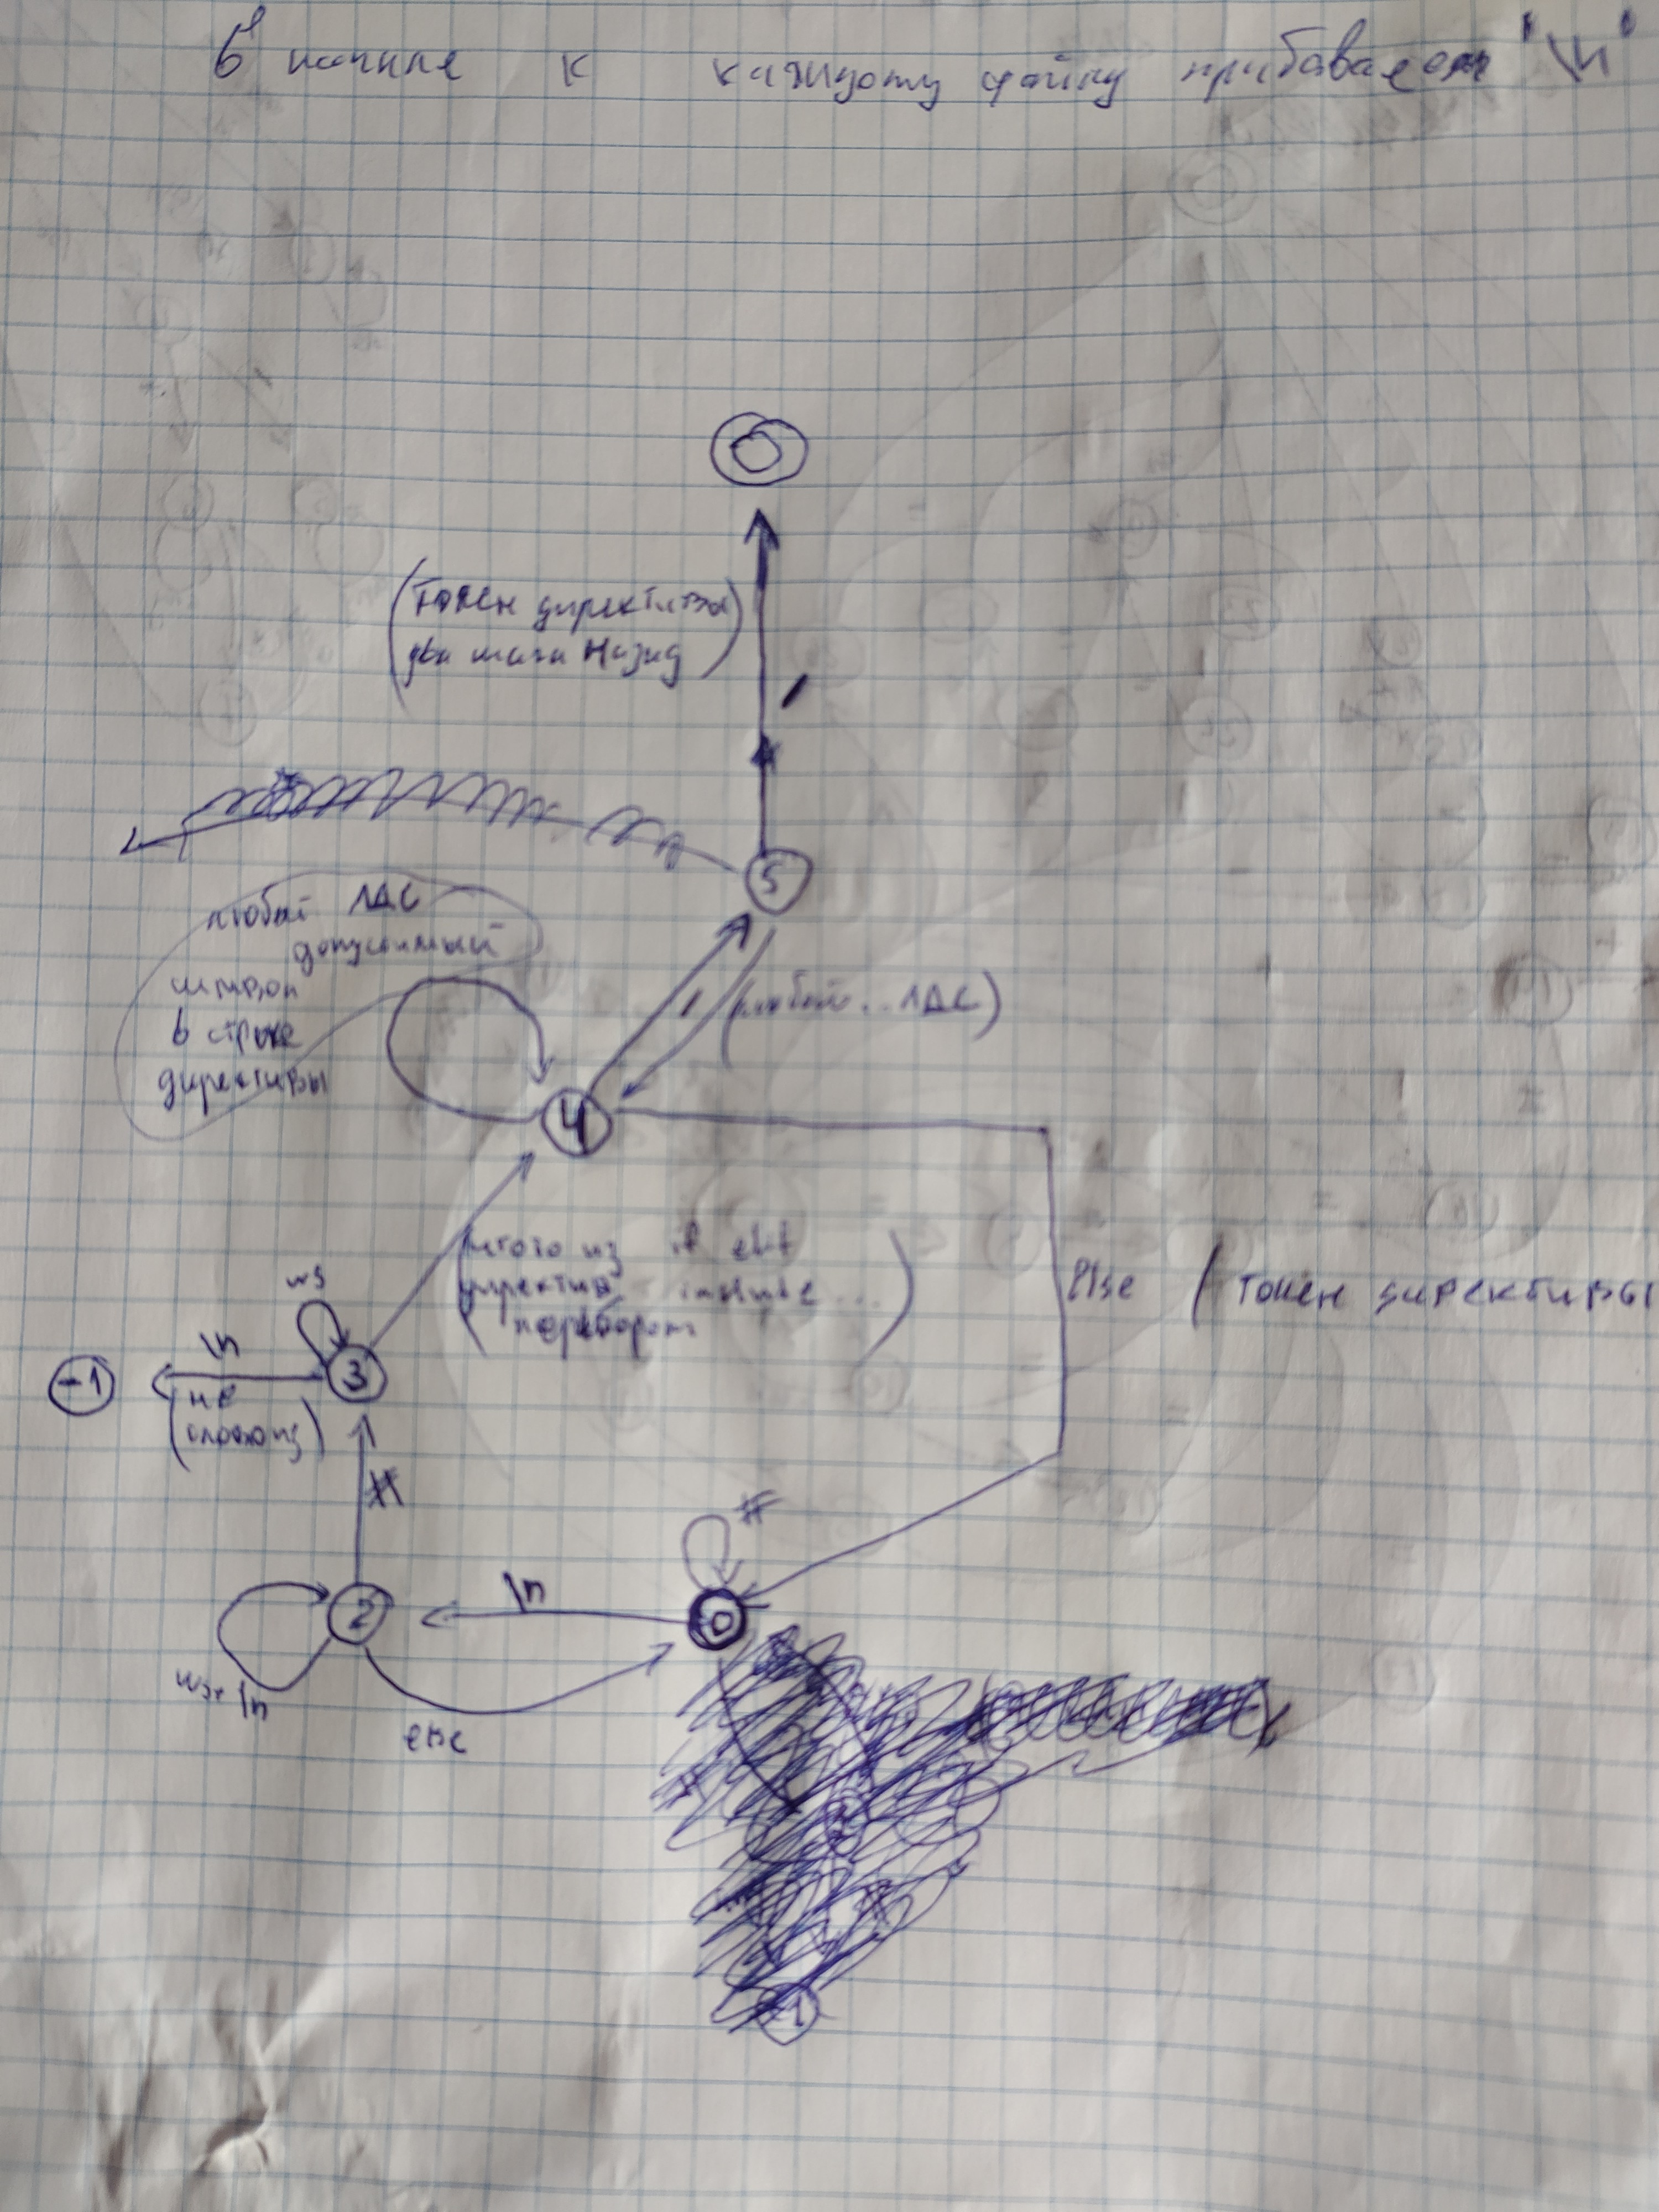 В начале к каждому файлу прибавляем '\n'
(токен директивы
два шага назад)
/
5
любой ЛДС
допустимый
символ
в строке
директивы
/ (любой... ЛДС)
4
из if elif
директив include ...)
перебором
else / токен директивы
ws
\n
-1
3
(не
#
#
\n
2
0
ws, \n
-1